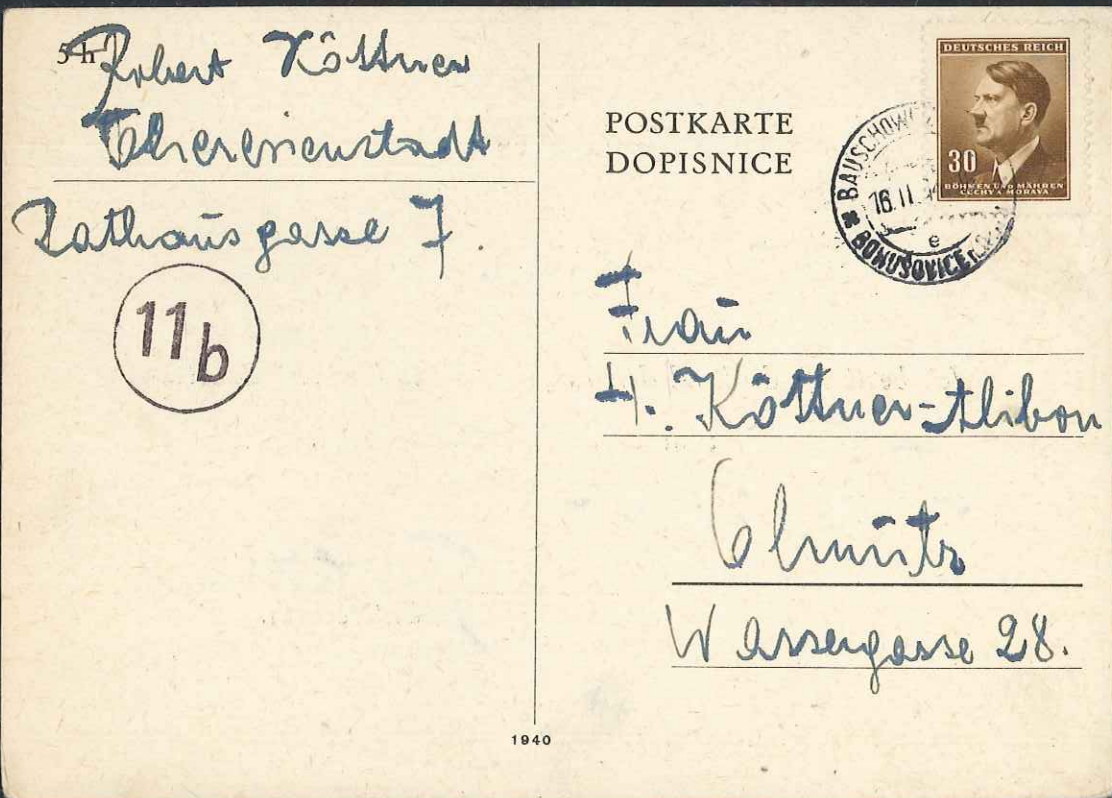 5 h
Robert Köttner
Theresienstadt
Rathausgasse 7.
11b
POSTKARTE
DOPISNICE
DEUTSCHES REICH
30
BÖHMEN UND MÄHREN
ČECHY A MORAVA
BAUSCHOWITZ
16.II.
e
BOHUŠOVICE
Frau
H. Köttner-Alibon
Olmütz
Wassergasse 28.
1940